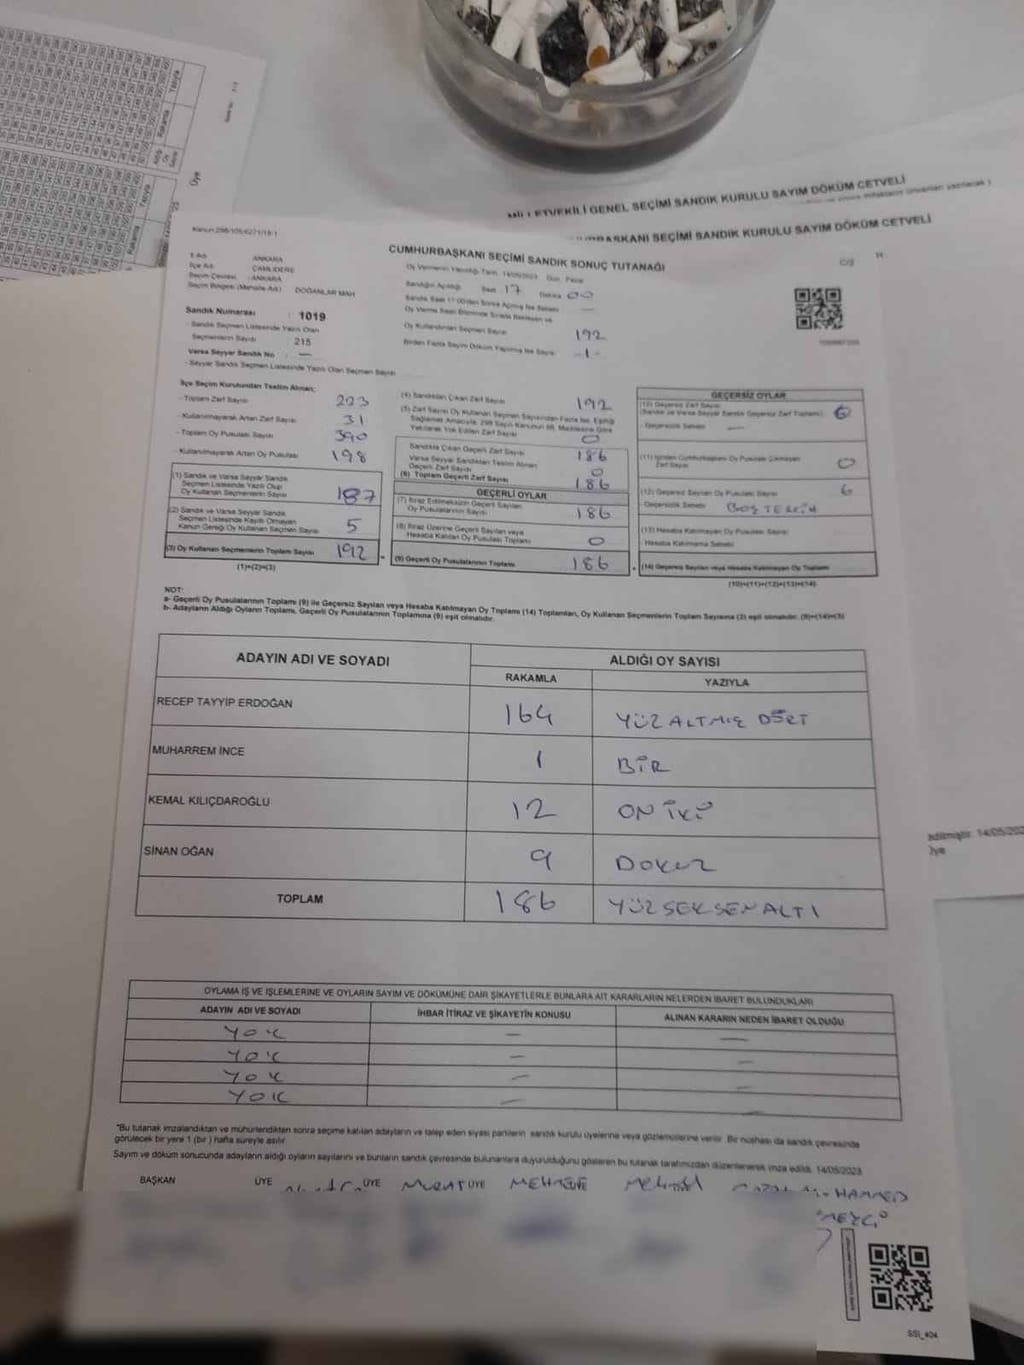 MİLLETVEKİLİ GENEL SEÇİMİ SANDIK KURULU SAYIM DÖKÜM CETVELİ
CUMHURBAŞKANI SEÇİMİ SANDIK KURULU SAYIM DÖKÜM CETVELİ
CUMHURBAŞKANI SEÇİMİ SANDIK SONUÇ TUTANAĞI
İl Adı ANKARA
İlçe Adı ÇAMLIDERE
Seçim Çevresi : ANKARA
Seçim Bölgesi (Mahalle Adı) DOĞANLAR MAH
Sandık Numarası : 1019
- Sandık Seçmen Listesinde Yazılı Olan
Seçmenlerin Sayısı 215
Varsa Seyyar Sandık No : —
- Seyyar Sandık Seçmen Listesinde Yazılı Olan Seçmen Sayısı
Oy Vermenin Yapıldığı Tarih 14/05/2023 Gün Pazar
Sandığın Açıldığı Saat 17 Dakika 00
Oy Kullandırılan Seçmen Sayısı 192
Birden Fazla Sayım Döküm Yapılmış İse Sayısı -1-
İlçe Seçim Kurulundan Teslim Alınan;
- Toplam Zarf Sayısı 223
- Kullanılmayarak Artan Zarf Sayısı 31
- Toplam Oy Pusulası Sayısı 390
- Kullanılmayarak Artan Oy Pusulası 198
(1) Sandık ve Varsa Seyyar Sandık
Seçmen Listesinde Yazılı Olup
Oy Kullanan Seçmenlerin Sayısı 187
(2) Sandık ve Varsa Seyyar Sandık
Seçmen Listesinde Kayıtlı Olmayan
Kanun Gereği Oy Kullanan Seçmen Sayısı 5
(3) Oy Kullanan Seçmenlerin Toplam Sayısı 192
(1)+(2)=(3)
(4) Sandıktan Çıkan Zarf Sayısı 192
(5) Zarf Sayısı Oy Kullanan Seçmen Sayısından Fazla İse, Eşitliği
Sağlamak Amacıyla, 298 Sayılı Kanunun 98. Maddesine Göre
Yakılarak Yok Edilen Zarf Sayısı 0
Sandıkta Çıkan Geçerli Zarf Sayısı 186
Varsa Seyyar Sandıktan Teslim Alınan
Geçerli Zarf Sayısı 0
(6) Toplam Geçerli Zarf Sayısı 186
GEÇERLİ OYLAR
(7) İtiraz Edilmeksizin Geçerli Sayılan
Oy Pusulalarının Sayısı 186
(8) İtiraz Üzerine Geçerli Sayılan veya
Hesaba Katılan Oy Pusulası Toplamı 0
(9) Geçerli Oy Pusulalarının Toplamı 186
GEÇERSİZ OYLAR
(10) Geçersiz Zarf Sayısı
(Sandık ve Varsa Seyyar Sandık Geçersiz Zarf Toplamı) 6
- Geçersizlik Sebebi —
(11) İçinden Cumhurbaşkanı Oy Pusulası Çıkmayan
Zarf Sayısı 0
(12) Geçersiz Sayılan Oy Pusulası Sayısı 6
- Geçersizlik Sebebi BOŞ TERCİH
(13) Hesaba Katılmayan Oy Pusulası Sayısı
- Hesaba Katılmama Sebebi
(14) Geçersiz Sayılan veya Hesaba Katılmayan Oy Toplamı
(10)+(11)+(12)+(13)=(14)
NOT:
a- Geçerli Oy Pusulalarının Toplamı (9) ile Geçersiz Sayılan veya Hesaba Katılmayan Oy Toplamı (14) Toplamları, Oy Kullanan Seçmenlerin Toplam Sayısına (3) eşit olmalıdır. (9)+(14)=(3)
b- Adayların Aldığı Oyların Toplamı, Geçerli Oy Pusulalarının Toplamına (9) eşit olmalıdır.
ADAYIN ADI VE SOYADI ALDIĞI OY SAYISI
RAKAMLA YAZIYLA
RECEP TAYYİP ERDOĞAN 164 YÜZ ALTMIŞ DÖRT
MUHARREM İNCE 1 BİR
KEMAL KILIÇDAROĞLU 12 ON İKİ
SİNAN OĞAN 9 DOKUZ
TOPLAM 186 YÜZSEKSENALTI
OYLAMA İŞ VE İŞLEMLERİNE VE OYLARIN SAYIM VE DÖKÜMÜNE DAİR ŞİKAYETLERLE BUNLARA AİT KARARLARIN NELERDEN İBARET BULUNDUKLARI
ADAYIN ADI VE SOYADI İHBAR İTİRAZ VE ŞİKAYETİN KONUSU ALINAN KARARIN NEDEN İBARET OLDUĞU
YOK — —
YOK — —
YOK — —
YOK — —
*Bu tutanak imzalandıktan ve mühürlendikten sonra seçime katılan adayların ve talep eden siyasi partilerin sandık kurulu üyelerine veya gözlemcilerine verilir. Bir nüshası da sandık çevresinde
görülecek bir yere 1 (bir) hafta süreyle asılır.
Sayım ve döküm sonucunda adayların aldığı oyların sayılarını ve bunların sandık çevresinde bulunanlara duyurulduğunu gösteren bu tutanak tarafımızdan düzenlenerek imza edildi. 14/05/2023
BAŞKAN ÜYE ÜYE MURAT ÜYE MEHMET ÜYE
SSİ_404